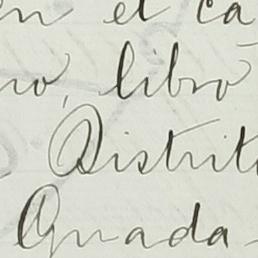 en el ca
no, libro
Distrito
Guada-